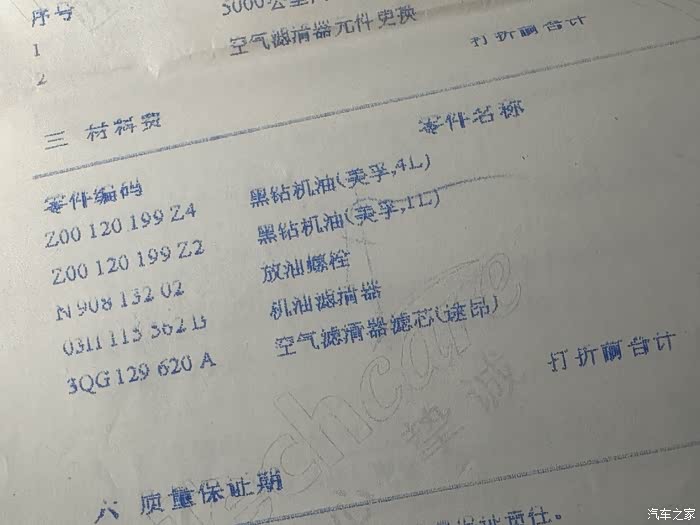 序号
5000公里
1
空气滤清器元件更换
2
打折前合计
三 材料费
零件编码
零件名称
Z00 120 199 Z4 黑钻机油(美孚,4L)
Z00 120 199 Z2 黑钻机油(美孚,1L)
N 908 132 02 放油螺栓
机油滤清器
3QG 129 620 A 空气滤清器滤芯(速昂)
打折前合计
诚
六 质量保证期
汽车之家